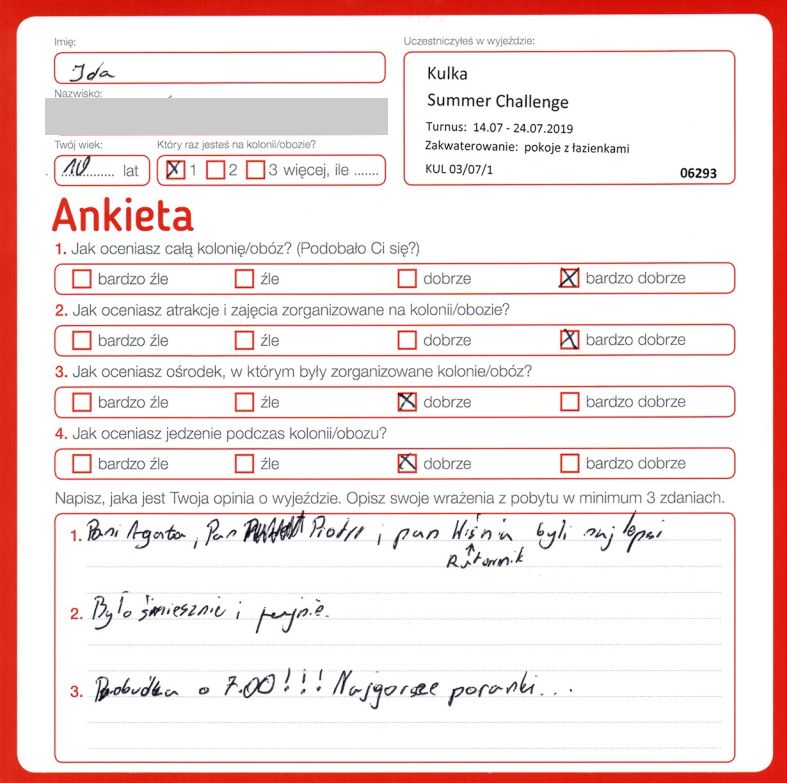 Imię:
Ida
Nazwisko:
Uczestniczyłeś w wyjeździe:
Kulka
Summer Challenge
Turnus: 14.07 - 24.07.2019
Zakwaterowanie: pokoje z łazienkami
KUL 03/07/1 06293
Twój wiek: Który raz jesteś na kolonii/obozie?
10 lat 1 2 3 więcej, ile .......
Ankieta
1. Jak oceniasz całą kolonię/obóz? (Podobało Ci się?)
bardzo źle źle dobrze bardzo dobrze
2. Jak oceniasz atrakcje i zajęcia zorganizowane na kolonii/obozie?
bardzo źle źle dobrze bardzo dobrze
3. Jak oceniasz ośrodek, w którym były zorganizowane kolonie/obóz?
bardzo źle źle dobrze bardzo dobrze
4. Jak oceniasz jedzenie podczas kolonii/obozu?
bardzo źle źle dobrze bardzo dobrze
Napisz, jaka jest Twoja opinia o wyjeździe. Opisz swoje wrażenia z pobytu w minimum 3 zdaniach.
1. Pani Agata, Pan Piotr i pan Wiśnia byli najlepsi
Ratownik
2. Było śmiesznie i fajnie.
3. Pobudka o 7.00!!! Najgorsze poranki...